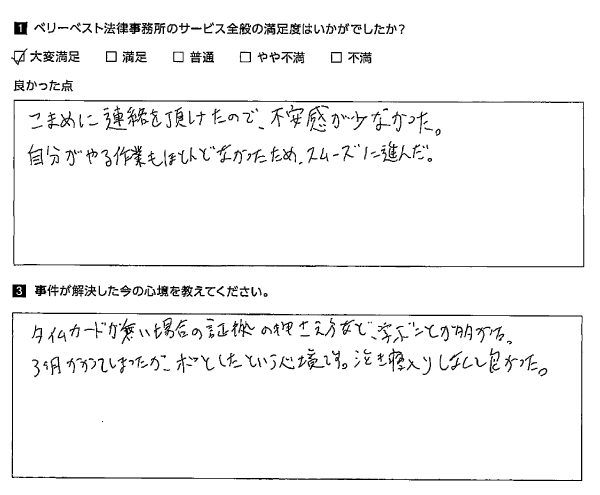 1 ベリーベスト法律事務所のサービス全般の満足度はいかがでしたか？
☑ 大変満足 □ 満足 □ 普通 □ やや不満 □ 不満
良かった点
こまめに連絡を頂けたので、不安感が少なかった。
自分がやる作業もほとんどなかったため、スムーズに進んだ。
3 事件が解決した今の心境を教えてください。
タイムカードが無い場合の証拠の押さえ方など、学ぶことが多かった。
3ヶ月かかってしまったが、ホッとしたという心境です。泣き寝入りしなくて良かった。